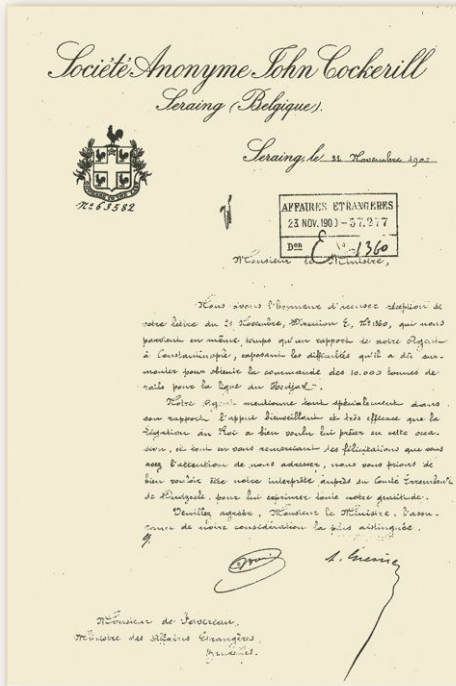 Société Anonyme John Cockerill
Seraing (Belgique).
Seraing, le 22 Novembre 190
No 63582
AFFAIRES ETRANGERES
23 NOV. 1903 - 57.277
Don E No 1360
Monsieur le Ministre,
Nous avons l'honneur d'accuser réception de
votre lettre du Novembre, Direction E, No 1360, qui nous
parvient en même temps qu'un rapport de notre Agent
à Constantinople, exposant les difficultés qu'il a dû sur-
monter pour obtenir la commande des 10.000 tonnes de
rails pour la ligne du Hedjaz.
Notre Agent mentionne tout spécialement dans
son rapport l'appui bienveillant et très efficace que la
Légation du Roi a bien voulu lui prêter en cette occa-
sion, et tout en vous remerciant des félicitations que vous
avez l'attention de nous adresser, nous vous prions de
bien vouloir être notre interprète auprès du Comte Errembault
de Dudzeele, pour lui exprimer toute notre gratitude.
Veuillez agréer, Monsieur le Ministre, l'assu-
rance de notre considération la plus distinguée.
Monsieur de Favereau,
Ministre des Affaires Etrangères,
Bruxelles.